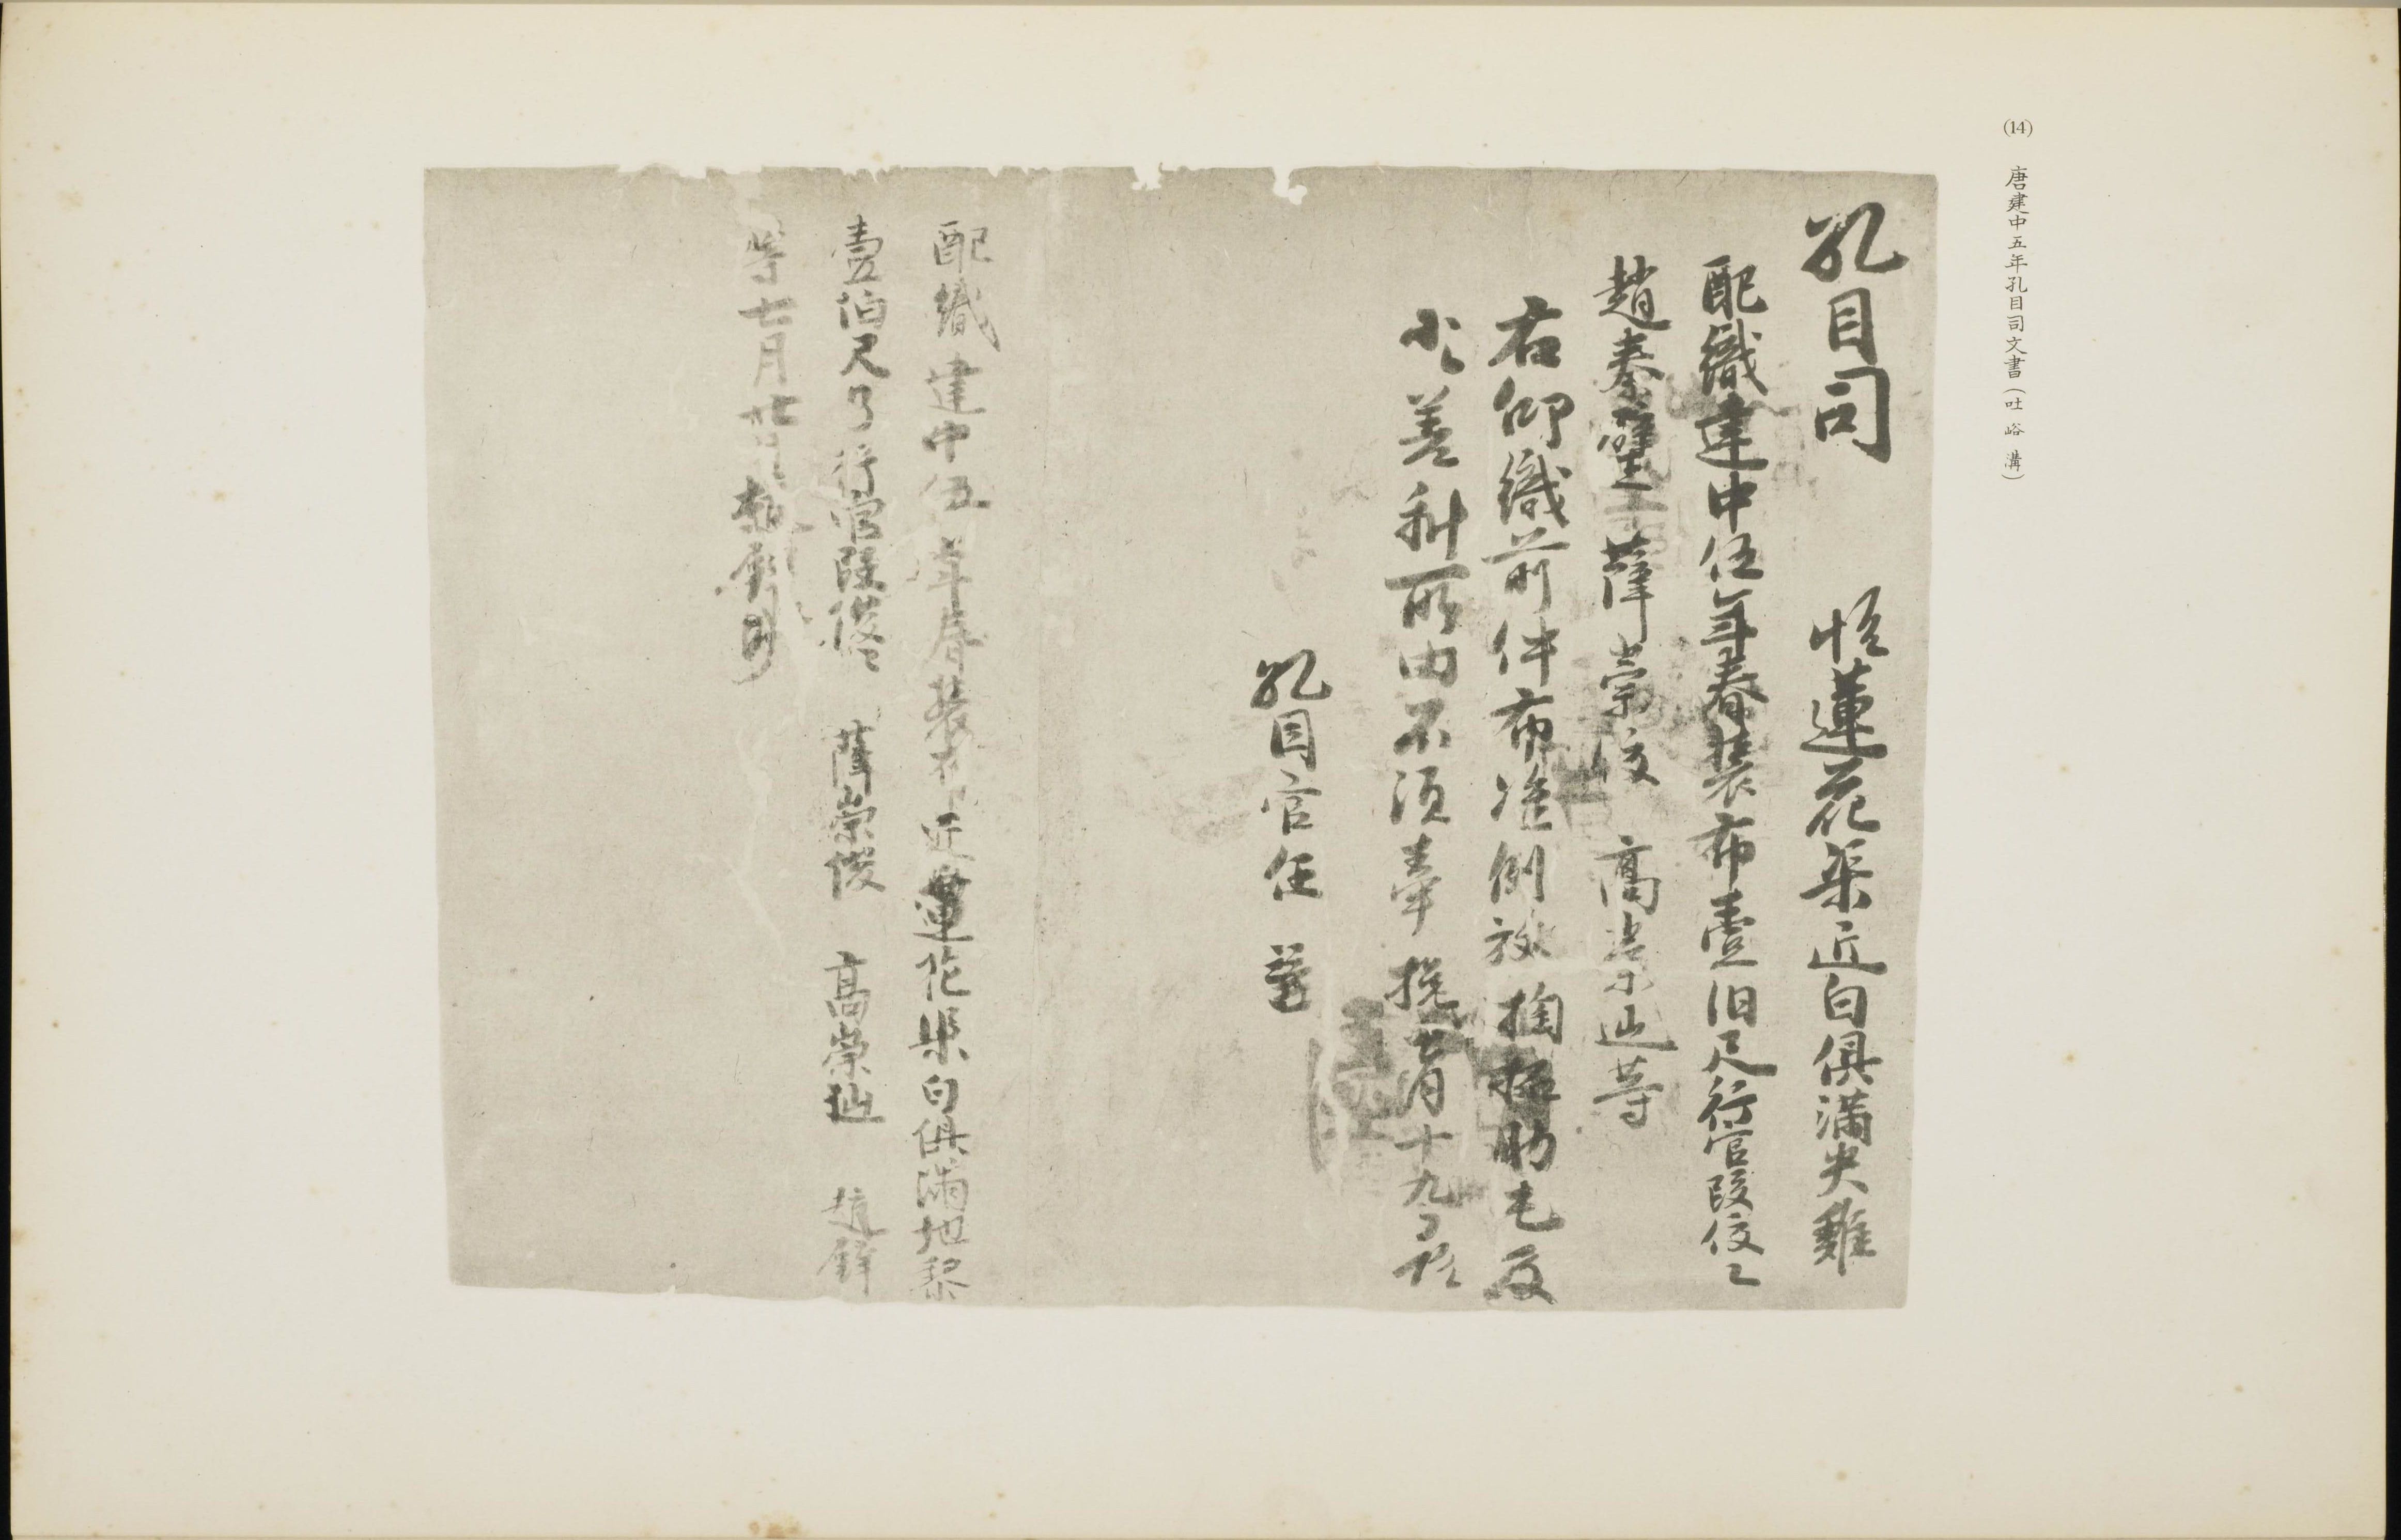 (14) 唐建中五年孔目司文書(吐峪溝)
孔目司 帖蓮花渠匠白俱滿失雞
配織建中伍年春裝布壹伯尺行官段俊俊
趙秦璧 薛崇俊 高崇迊等
右仰織前件布准例放掏拓助屯及
小小差科所由不須牽挽七月十九日帖
孔目官任
配織建中伍年春裝布匠蓮花渠白俱滿地黎
壹伯尺了行官段俊俊 薛崇俊 高崇迊 趙
等七月廿日趙